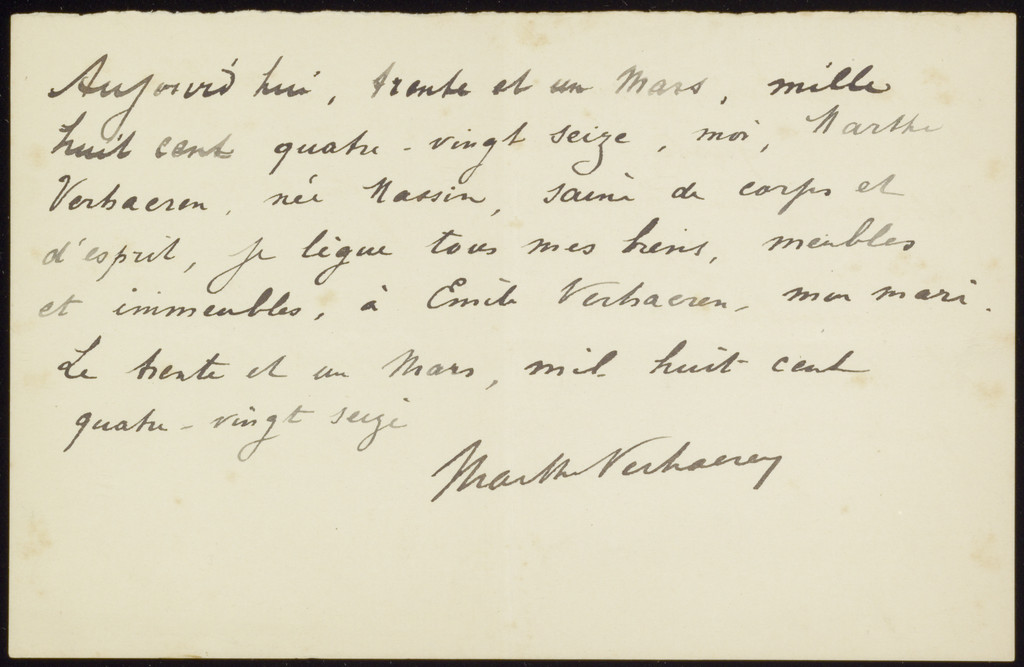 Aujourd'hui, trente et un Mars, mille
huit cent quatre-vingt seize, moi, Marthe
Verhaeren, née Massin, saine de corps et
d'esprit, je lègue tous mes biens, meubles
et immeubles, à Emile Verhaeren, mon mari.
Le trente et un Mars, mil huit cent
quatre-vingt seize
Marthe Verhaeren